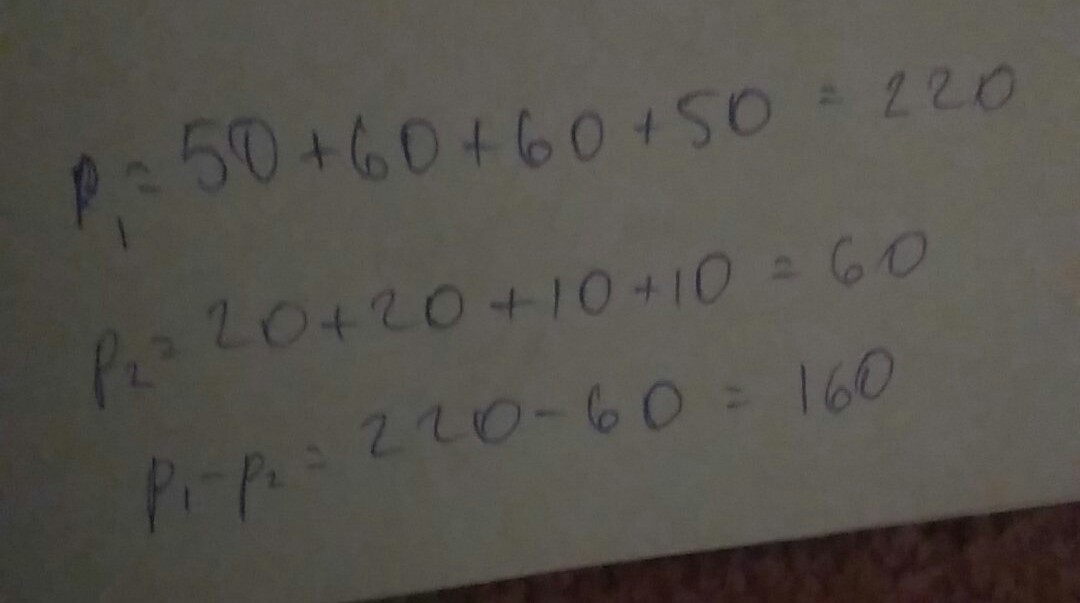 p₁ = 50 + 60 + 60 + 50 = 220
p₂ = 20 + 20 + 10 + 10 = 60
p₁ - p₂ = 220 - 60 = 160